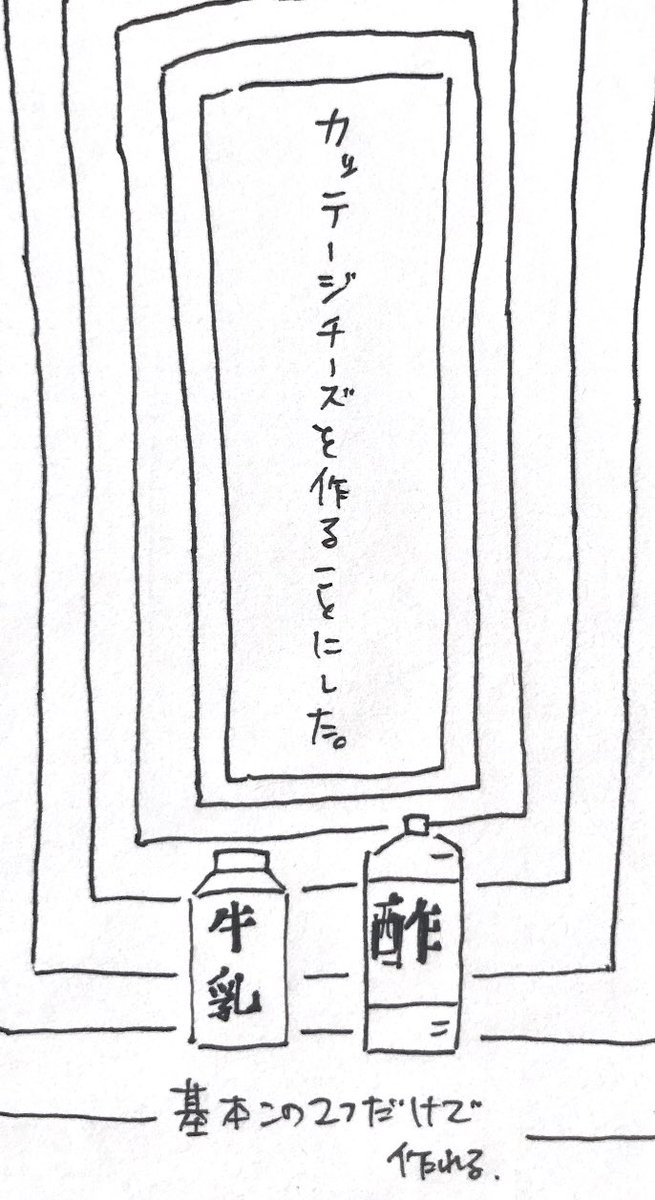 カッテージチーズを作ることにした。
牛乳
酢
基本この2つだけで
作れる.